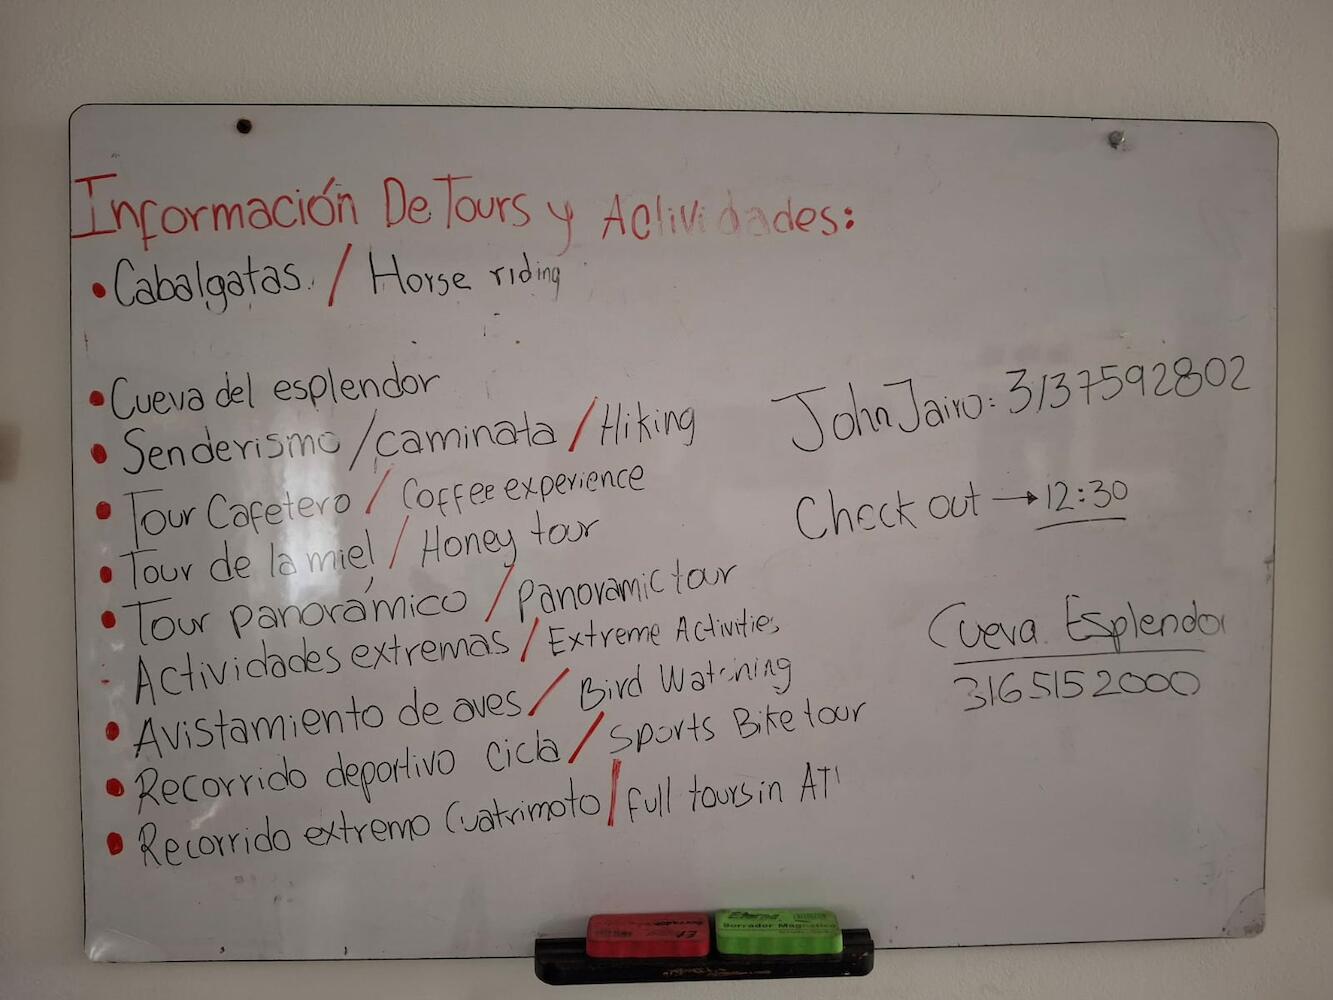 Información De Tours y Actividades:
• Cabalgatas. / Horse riding
• Cueva del esplendor
• Senderismo / caminata / Hiking
• Tour Cafetero / Coffee experience
• Tour de la miel / Honey tour
• Tour panorámico / Panoramic tour
Actividades extremas / Extreme Activities
• Avistamiento de aves / Bird Watching
• Recorrido deportivo cicla / Sports Bike tour
• Recorrido extremo Cuatrimoto / full tours in
John Jairo: 3137592802
Check out → 12:30
Cueva Esplendor
3165152000
Borrador Magnético